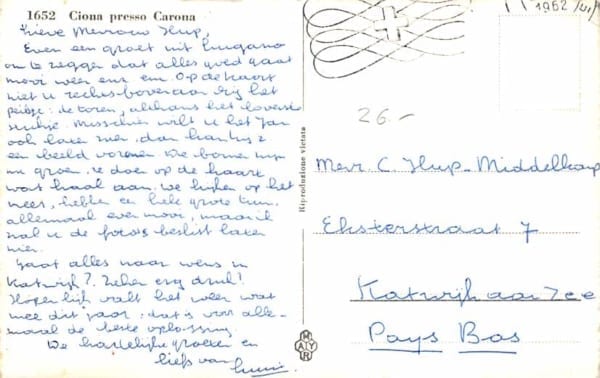 1652 Ciona presso Carona
Lieve Mevrouw Hup,
Even een groet uit Lugano
om te zeggen dat alles goed gaat
mooi weer enz. Op de kaart
ziet u rechts bovenaan bij het
: de toren, althans het bovenste
stukje. Misschien wilt u het Jan
ook laten zien, dan kan hij z
een beeld vormen. De bomen zijn
nu groen, ze doen op de kaart
wat kaal aan. We kijken op het
meer, hebben een hele grote tuin.
allemaal even mooi, maar ik
zal u de foto's beslist laten
zien.
Gaat alles naar wens in
Katwijk? Zeker erg druk!
Hopelijk valt het weer wat
mee dit jaar: dat is voor alle-
maal de beste oplossing.
De hartelijke groeten en
liefs van
1962
26.-
Riproduzione vietata
Mevr. C. Hup-Middelkoop
Eksterstraat 7
Katwijk aan Zee
Pays Bas